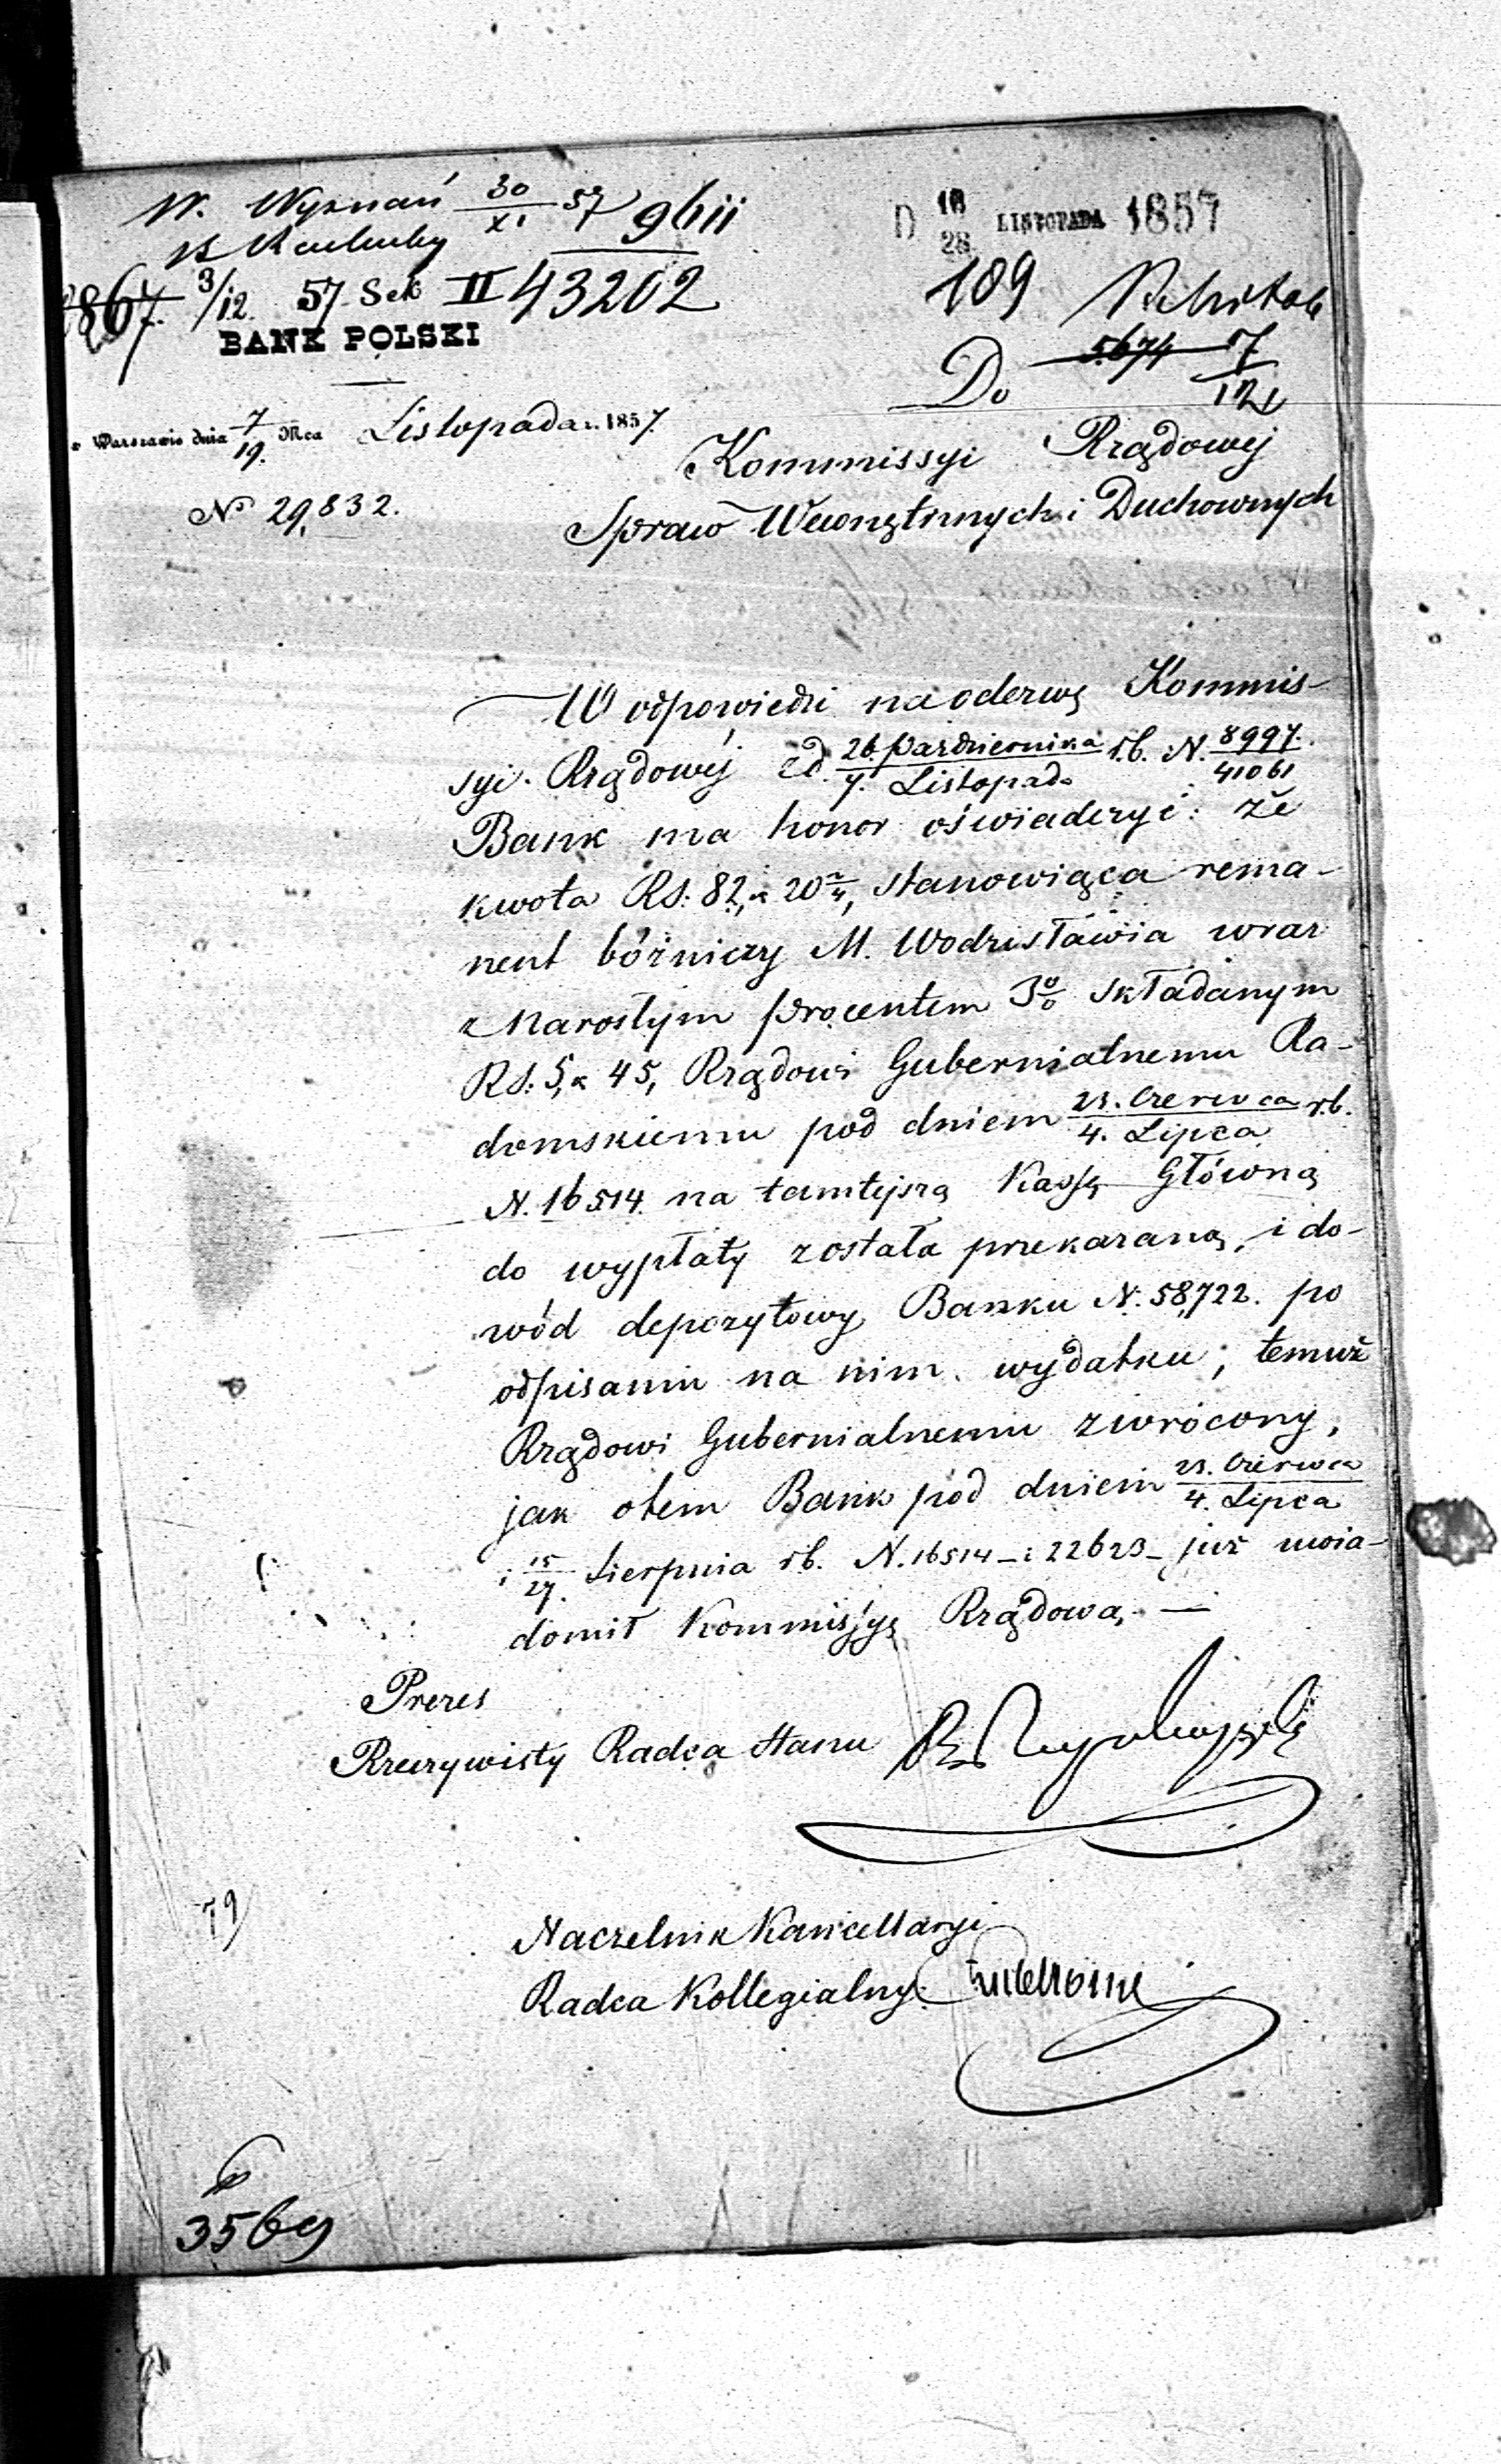 W. Wyznań 30/XI 57 9611
D 16/28 LISTOPADA 1857
3/12. 57 Sek II 43202
189
867.
BANK POLSKI
5674 7/12
Do
w Warszawie dnia 7/19. Mca Listopada r. 1857
Kommissyi Rządowej
No 29,832.
Spraw Wewnętrznych i Duchownych
W odpowiedzi na odezwę Kommis-
syi Rządowéj z d. 26. Października/7. Listopada r.b. N. 8997./41061
Bank ma honor oświadczyć: że
kwota RS: 82, k 20 2/4, stanowiąca rema-
nent bóżniczy M. Wodzisławia wraz
z narosłym procentem 3% składanym
RS: 5, k 45, Rządowi Gubernialnemu Ra-
domskiemu pod dniem 23. Czerwca/4. Lipca r.b.
N. 16514 na tamtejszą Kassę Główną
do wypłaty została przekazaną, i do-
wód depozytowy Banku N. 58,722. po
odpisaniu na nim wydatku, temuż
Rządowi Gubernialnemu zwrócony,
jak o tem Bank pod dniem 23. Czerwca/4. Lipca
i 15/27. Sierpnia r.b. N. 16514 – i 22623 – już uwia-
domił Kommissyę Rządową. —
Prezes
Rzeczywisty Radca Stanu
79
Naczelnik Kancellaryi
Radca Kollegialny
3569